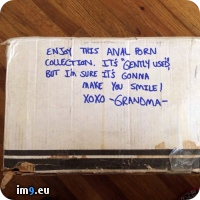 ENJOY THIS ANAL PORN
COLLECTION. IT'S "GENTLY USED",
BUT I'M SURE IT'S GONNA
MAKE YOU SMILE!
XOXO -GRANDMA-
im9.eu